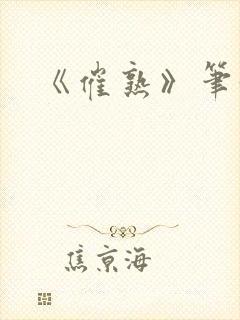 《催熟》筆
焦京海